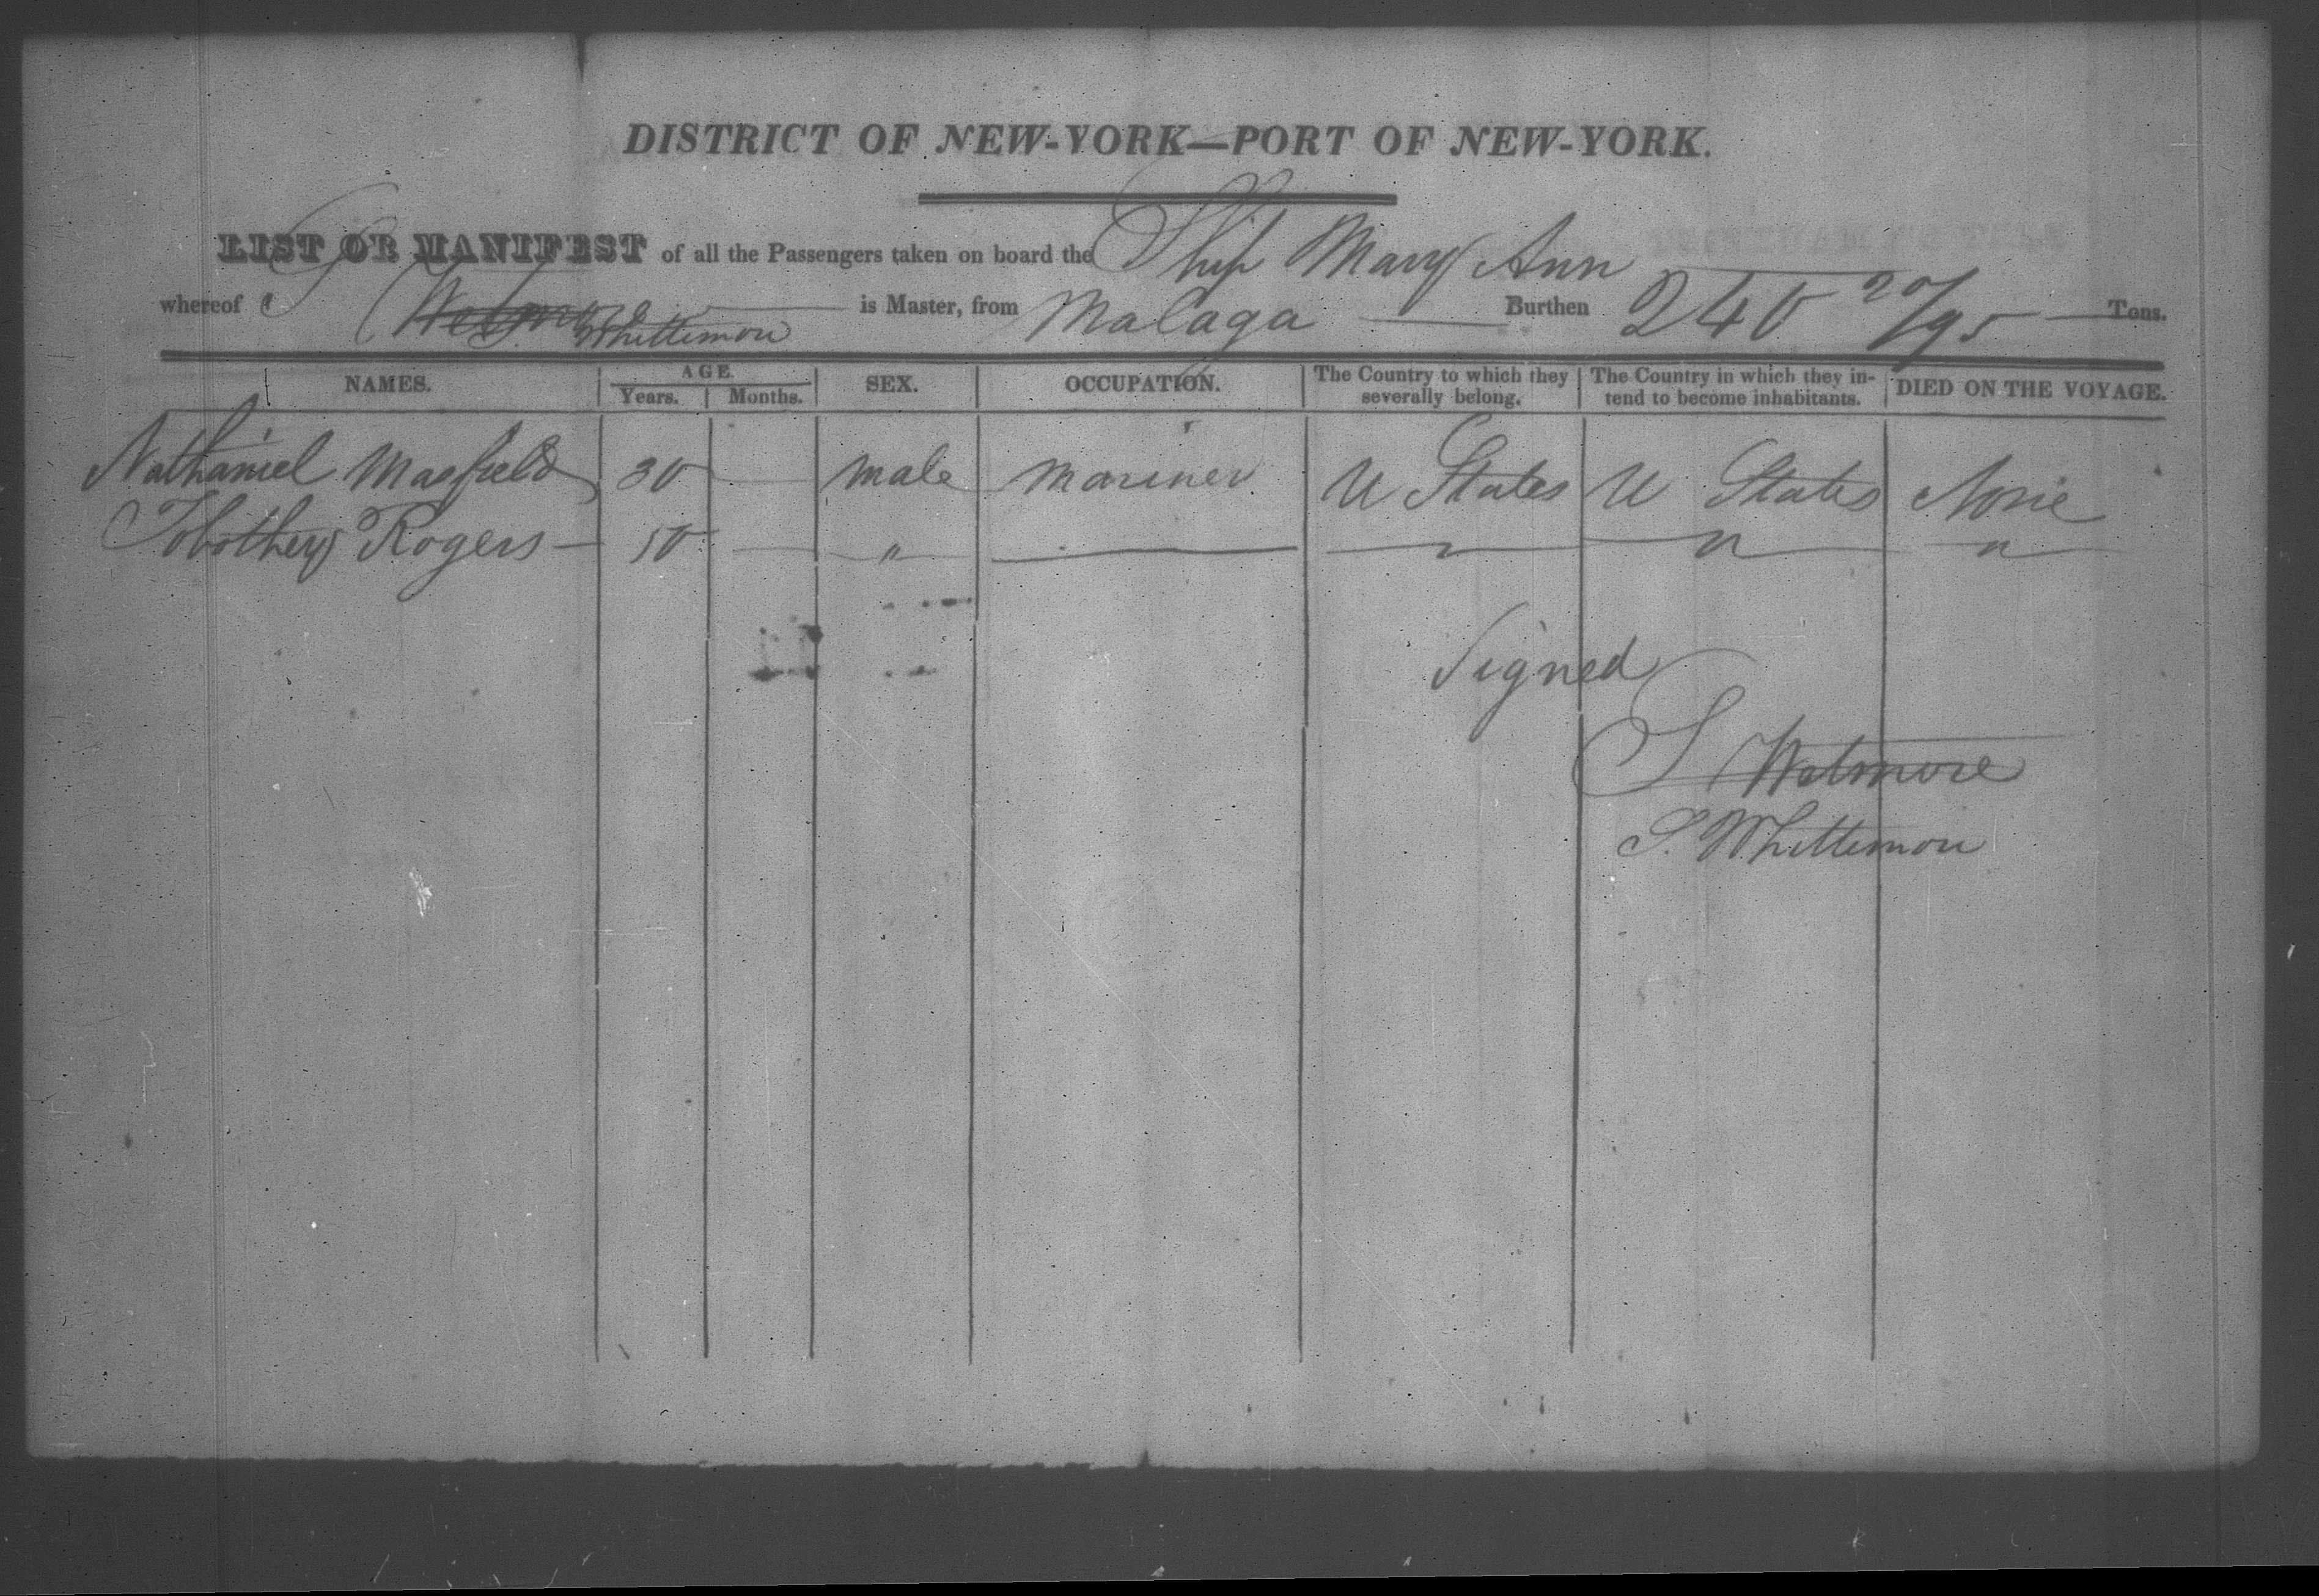 DISTRICT OF NEW-YORK—PORT OF NEW-YORK.
LIST OR MANIFEST of all the Passengers taken on board the Ship Mary Ann
whereof S Wetmore Whittemore is Master, from Malaga Burthen 240 20/95 Tons.
NAMES. AGE. Years. Months. SEX. OCCUPATION. The Country to which they severally belong. The Country in which they intend to become inhabitants. DIED ON THE VOYAGE.
Nathaniel Masfield 30 male mariner U States U States None
Rogers 50 " " " "
Signed
S Wetmore
S. Whittemore